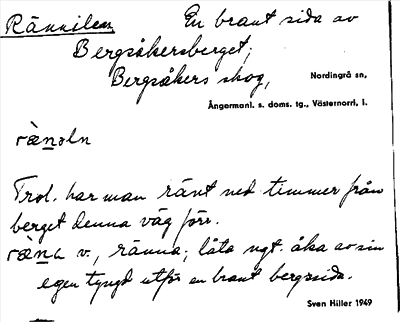 Rännilen En brant sida av
Bergsåkersberget;
Bergsåkers skog, Nordingrå sn,
Ångermanl. s. doms. tg., Västernorrl. l.
ræ̀nəln
Trol. har man ränt ned timmer från
berget denna väg förr.
ræ̀na v., ränna; låta ngt. åka av sin
egen tyngd utför en brant bergssida.
Sven Hiller 1949